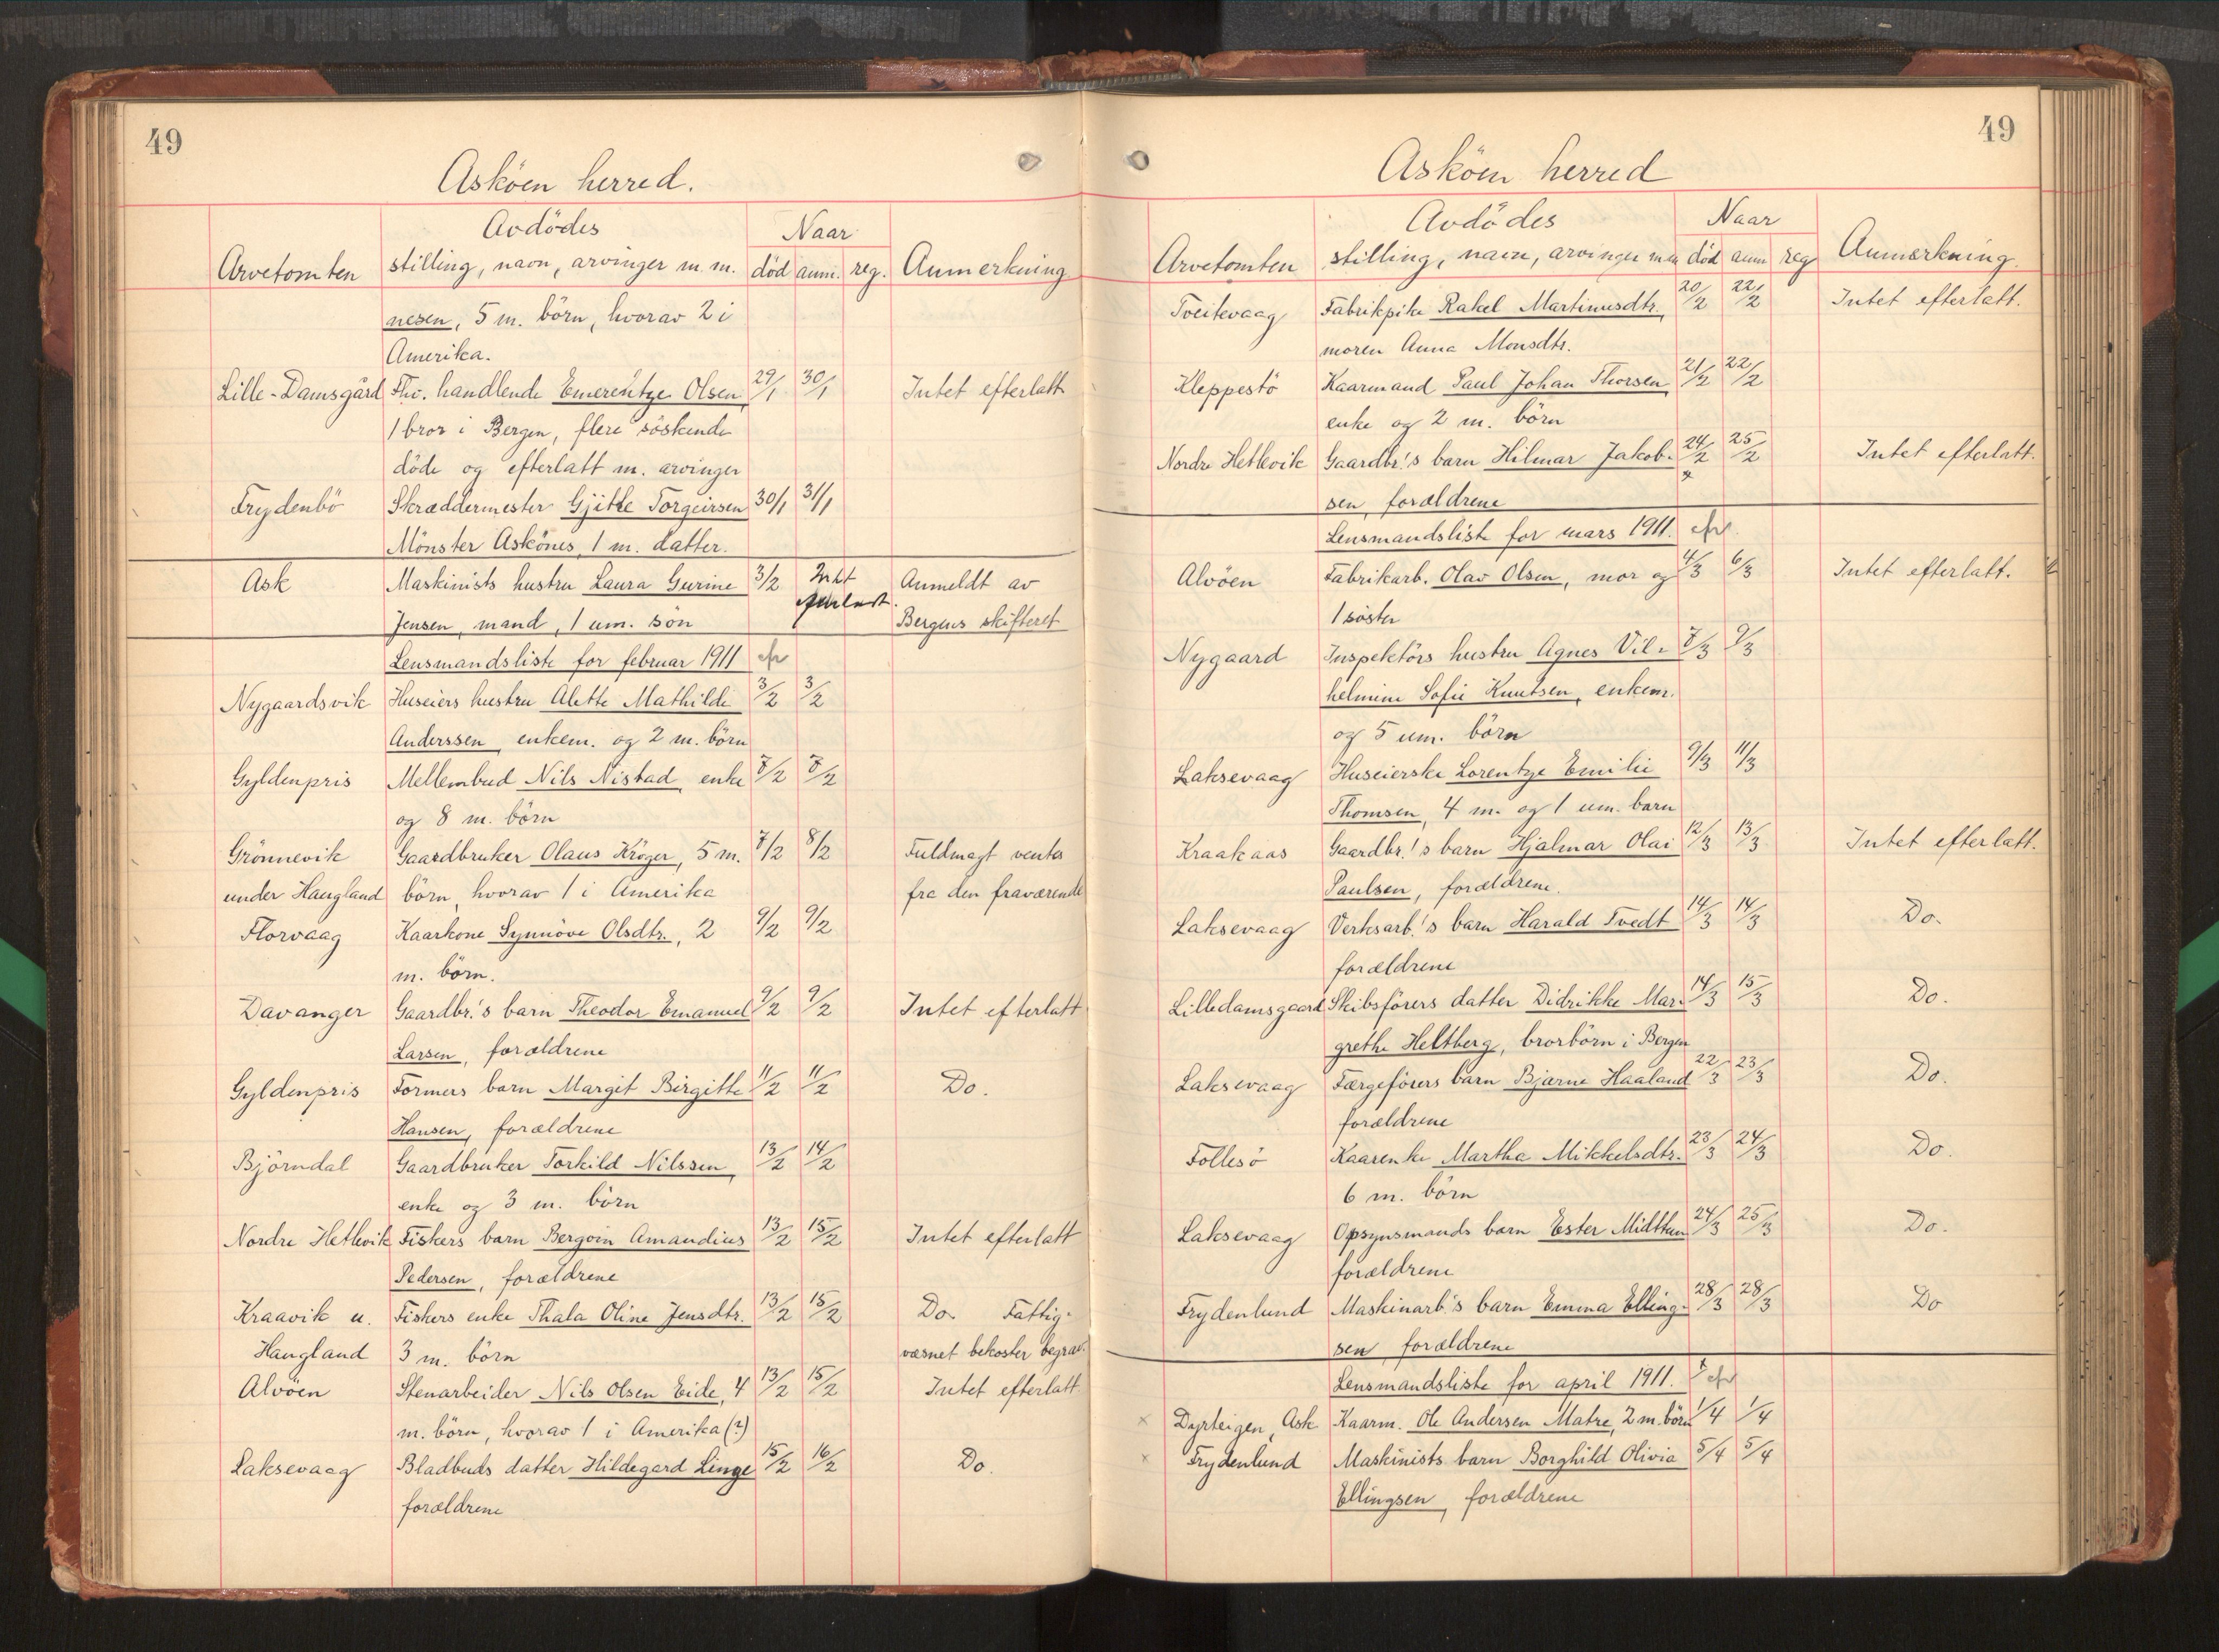 49
Asköen herred.
Arvetomten Avdödes stilling, navn, arvinger m. m. Naar död anm. reg. Anmerkning
nesen, 5 m. börn, hvorav 2 i
Amerika.
Lille-Damsgård Fhv. handlende Emerentze Olsen, 29/1 30/1 Intet efterlatt
1 bror i Bergen, flere söskende
döde og efterlatt m. arvinger
Frydenbö Skræddermester Gjitle Torgeirsen 30/1 31/1
Mönster Askönes, 1 m. datter.
Ask Maskinists hustru Laura Gurine 3/2 Intet Anmeldt av
Jensen, mand, 1 um. sön efterlatt. Bergens skifteret
Lensmandsliste for februar 1911
Nygaardsvik Huseiers hustru Alette Mathilde 3/2 3/2
Anderssen, enkem. og 2 m. börn
Gyldenpris Mellembud Nils Nistad, enke 8/2 8/2
og 8 m. börn
Grönnevik Gaardbruker Olaus Kröger, 5 m. 7/2 8/2 Fuldmagt ventes
under Haugland börn, hvorav 1 i Amerika fra den fraværende
Florvaag Kaarkone Synnöve Olsdtr., 2 9/2 9/2
m. börn.
Davanger Gaardbr.'s barn Theodor Emanuel 9/2 9/2 Intet efterlatt
Larsen, forældrene
Gyldenpris Formers barn Margit Birgitte 11/2 11/2 Do.
Hansen, forældrene
Björndal Gaardbruker Torkild Nilssen, 13/2 14/2
enke og 3 m. börn
Nordre Hetlevik Fiskers barn Bergvin Amandius 13/2 15/2 Intet efterlatt
Pedersen, forældrene
Kraavik u. Fiskers enke Thala Oline Jensdtr. 13/2 15/2 Do. Fattig-
Haugland 3 m. börn væsnet bekoster begrav.
Alvöen Stenarbeider Nils Olsen Eide, 4 13/2 15/2 Intet efterlatt.
m. börn, hvorav 1 i Amerika (?)
Laksevaag Bladbuds datter Hildegard Linge 15/2 16/2 Do.
forældrene
49
Asköen herred
Arvetomten Avdödes stilling, navn, arvinger m.m. Naar död anm reg Anmerkning.
Tveitevaag Fabrikpike Rakel Martinusdtr., 20/2 22/2 Intet efterlatt.
moren Anna Monsdtr.
Kleppestö Kaarmand Paul Johan Thorsen, 21/2 22/2
enke og 2 m. börn
Nordre Hetlevik Gaardbr.'s barn Hilmar Jakob- 24/2 25/2 Intet efterlatt.
sen, forældrene
Lensmandsliste for mars 1911.
Alvöen Fabrikarb. Olav Olsen, mor og 4/3 6/3 Intet efterlatt.
1 söster
Nygaard Inspektörs hustru Agnes Vil- 8/3 9/3
helmine Sofie Knutsen, enkem.
og 5 um. börn
Laksevaag Huseierske Lorentze Emilie 9/3 11/3
Thomsen, 4 m. og 1 um. barn
Kraakaas Gaardbr.'s barn Hjalmar Olai 12/3 13/3 Intet efterlatt.
Paulsen, forældrene.
Laksevaag Verksarb.'s barn Harald Tvedt 14/3 14/3 Do.
forældrene
Lilledamsgaard Skibsförers datter Didrikke Mar- 14/3 15/3 Do.
grethe Heltberg, brorbörn i Bergen
Laksevaag Færgeförers barn Bjarne Haaland 22/3 23/3 Do.
forældrene
Follesö Kaarenke Martha Mikkelsdtr. 23/3 24/3 Do.
6 m. börn
Laksevaag Opsynsmands barn Ester Midttun 24/3 25/3 Do.
forældrene
Frydenlund Maskinarb.'s barn Emma Elling- 28/3 28/3 Do
sen, forældrene
Lensmandsliste for april 1911.
x Dyrteigen, Ask Kaarm. Ole Andersen Matre, 2 m. börn 1/4 1/4
x Frydenlund Maskinists barn Borghild Olivia 5/4 5/4
Ellingsen, forældrene